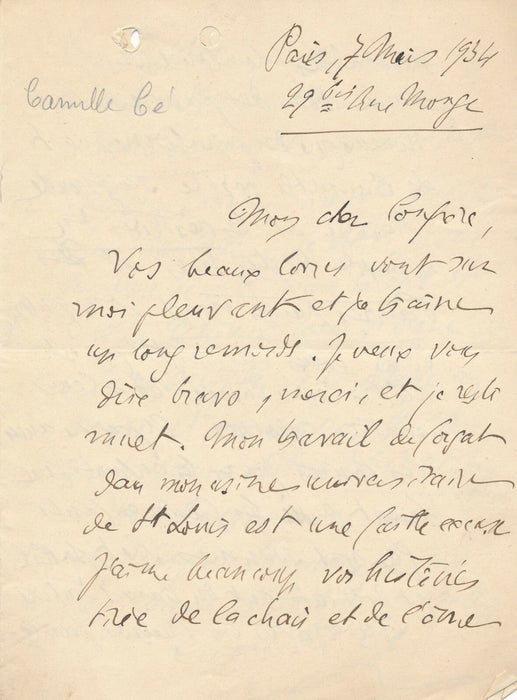 Paris, 7 Mars 1934
29 bis Rue Monge
Camille Cé
Mon cher Confrère,
Vos beaux livres vont sur
moi pleuvant et je traîne
un long remords. Je veux vous
dire bravo, merci, et je reste
muet. Mon travail de forçat
dans mon usine universitaire
de St Louis est une faible excuse
J'aime beaucoup vos histoires
tirée de la chair et de l'âme